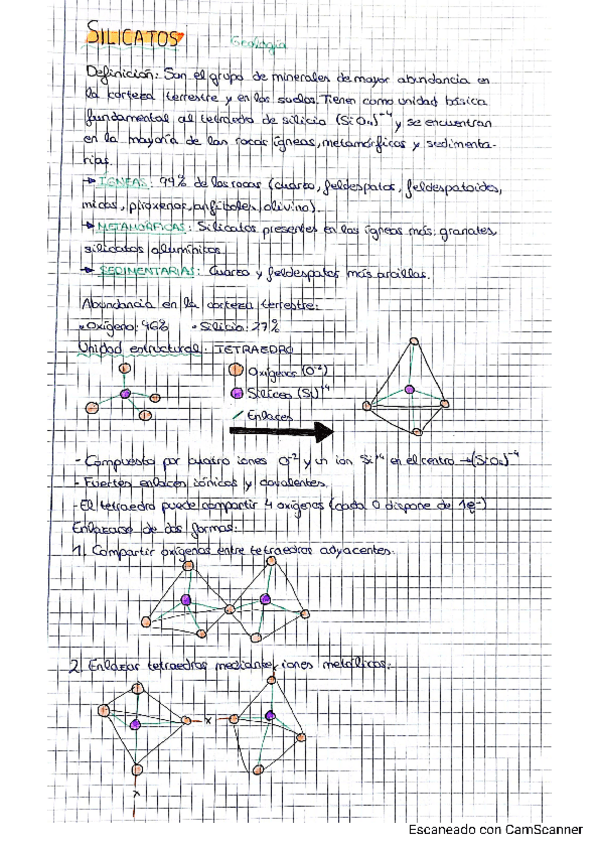 SILICATOS
Geología
Definición: Son el grupo de minerales de mayor abundancia en
la corteza terrestre y en los suelos. Tienen como unidad básica
fundamental al tetraedro de silicio (SiO₄)⁻⁴ y se encuentran
en la mayoría de las rocas ígneas, metamórficas y sedimenta-
rias.
→ ÍGNEAS: 99% de las rocas (cuarzo, feldespatos, feldespatoides,
micas, piroxenos, anfíboles, olivino).
→ METAMÓRFICAS: Silicatos presentes en las ígneas más: granates,
silicatos alumínicos
→ SEDIMENTARIAS: Cuarzo y feldespatos más arcillas.
Abundancia en la corteza terrestre:
• Oxígeno: 46% • Silicio: 27%
Unidad estructural: TETRAEDRO
Oxígenos (O⁻²)
Silíceo (Si)⁺⁴
Enlaces
- Compuesto por cuatro iones O⁻² y un ion Si⁺⁴ en el centro → (SiO₄)⁻⁴
- Fuertes enlaces iónicos y covalentes.
- El tetraedro puede compartir 4 oxígenos (cada O dispone de 1e⁻)
Enlazarse de dos formas:
1) Compartir oxígenos entre tetraedros adyacentes.
2) Enlazar tetraedros mediante iones metálicos.
x
x
Escaneado con CamScanner